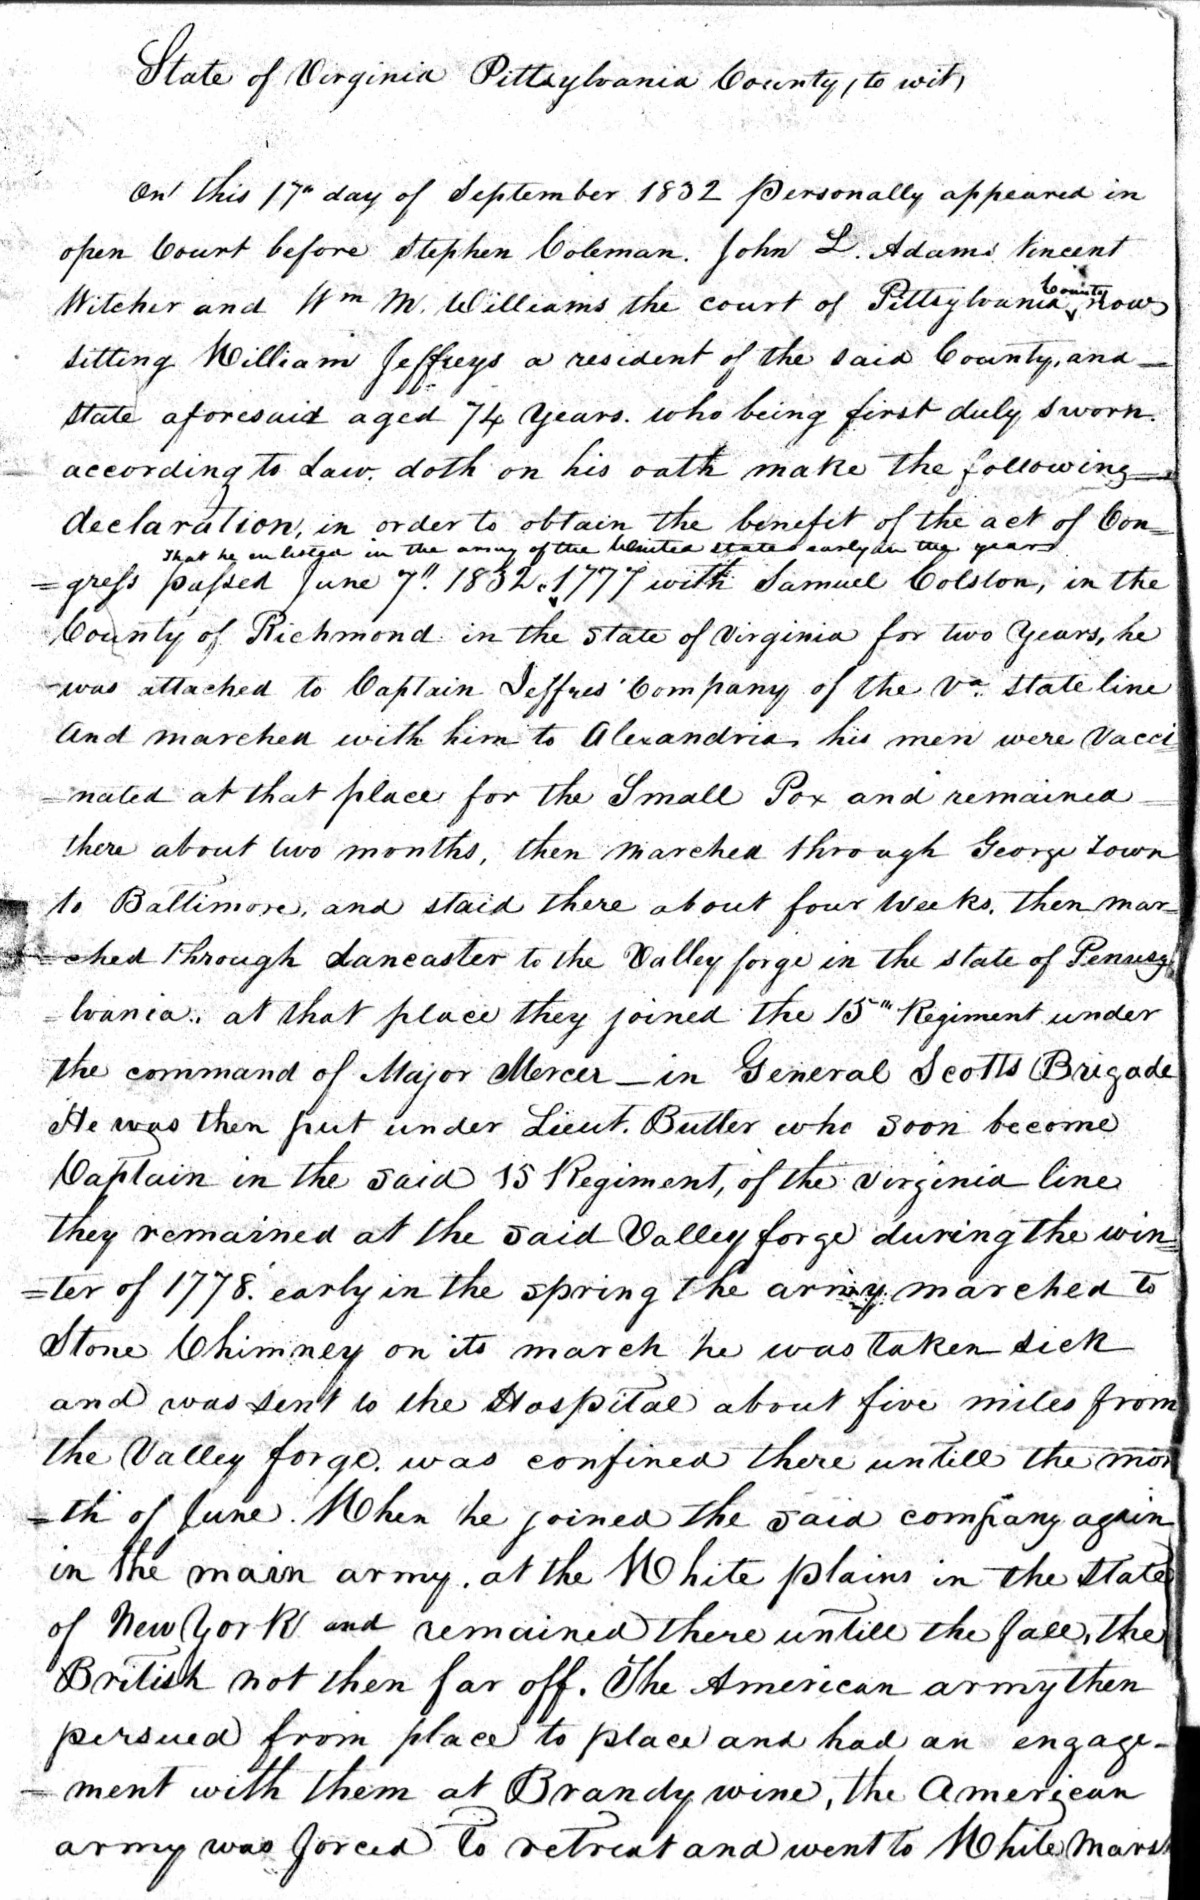 State of Virginia Pittsylvania County, to wit,
On this 17th day of September 1832 personally appeared in
open Court before Stephen Coleman. John L. Adams Vincent
Witcher and Wm M. Williams the court of Pittsylvania County now
sitting William Jeffreys a resident of the said County, and
state aforesaid aged 74 Years. who being first duly sworn.
according to Law. doth on his oath make the following
declaration, in order to obtain the benefit of the act of Con=
that he enlisted in the army of the United states early in the year
=gress passed June 7" 1832. 1777 with Samuel Colston, in the
County of Richmond in the state of Virginia for two Years, he
was attached to Captain Jeffres' Company of the Va. state line
and marched with him to Alexandria, his men were Vacci=
=nated at that place for the Small Pox and remained
there about two months, then marched through George Town
to Baltimore, and staid there about four Weeks. then mar=
=ched through Lancaster to the Valley forge in the state of Pennsy
=lvania. at that place they joined the 15th Regiment under
the command of Major Mercer — in General Scotts Brigade
He was then put under Lieut. Butler who soon become
Captain in the said 15 Regiment, of the Virginia line
they remained at the said Valley forge during the win=
=ter of 1778. early in the spring the army marched to
Stone Chimney on its march he was taken sick
and was sent to the Hospital about five miles from
the Valley forge. was confined there untill the mon
=th of June. When he joined the said company again
in the main army. at the White plains in the State
of New York and remained there untill the fall, the
British not then far off. The American army then
persued from place to place and had an engage-
-ment with them at Brandy wine, the American
army was forced to retreat and went to White Marsh